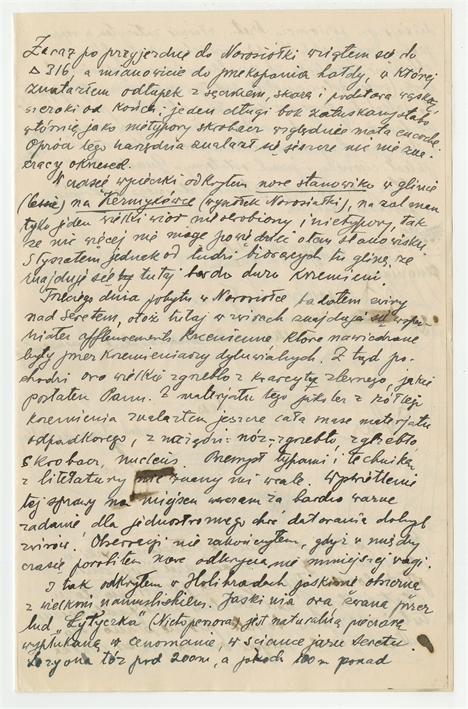 Zaraz po przyjeździe do Nowosiołki wziąłem się do
△ 316, a mianowicie do przekopania hałdy, w której
znalazłem odłupek z sęczkiem, skazą i podstawą wąską,
szeroki od kości: jeden długi bok załuskany słabo
wtórnie jako nietypowy skrobacz względnie mała
Oprócz tego narzędzia znalazł się jeszcze nic nie zna-
czący okrzesek.
W czasie wycieczki odkryłem nowe stanowisko w glinie
(lessie) na Kermykówce (wyrostek Nowosiółki), na załaman
tylko jeden wielki wiór nieobrobiony i nietypowy, tak
że nic więcej nie mogę powiedzieć o tem stanowisku.
Słyszałem jednak od ludzi biorących tu glinę, że
znajdują się tutaj bardzo duże krzemienie.
Trzeciego dnia pobytu w Nowosiółce badałem żwiry
nad Seretem, otóż tutaj w żwirach znajdują się wspa-
niałe affleurements krzemienne które nawiedzane
były przez krzemieniarzy dyluwialnych. Z tąd po-
chodzi owo wielkie zgrzebło z kwarcytu zlewnego, jakie
posłałem Panu. Z materjału tego jakoteż z żółtego
krzemienia znalazłem jeszcze całą masę materjału
odpadkowego, z narzędzi: nóż-zgrzebło, zgrzebło
skrobacz, nucleus. Przemysł typami i techniką
z literatury nie znany mi wcale. Wyświetlenie
tej sprawy na miejscu uważam za bardzo ważne
zadanie dla jednostronnego choć datowania dolnych
żwirów. Obserwacji nie zakończyłem, gdyż w między
czasie porobiłem nowe odkrycia nie mniejszej wagi.
I tak odkryłem w Holihradach jaskinię obszerną
z wielkim namuliskiem. Jaskinia owa zwana przez
lud "Łytyczka" (Nietoperzowa) jest naturalną pieczarą
wypłukaną w cenomanie, w ściance jaru Seretu.
Leży ona tóż pod 200m, a jakich 100m ponad